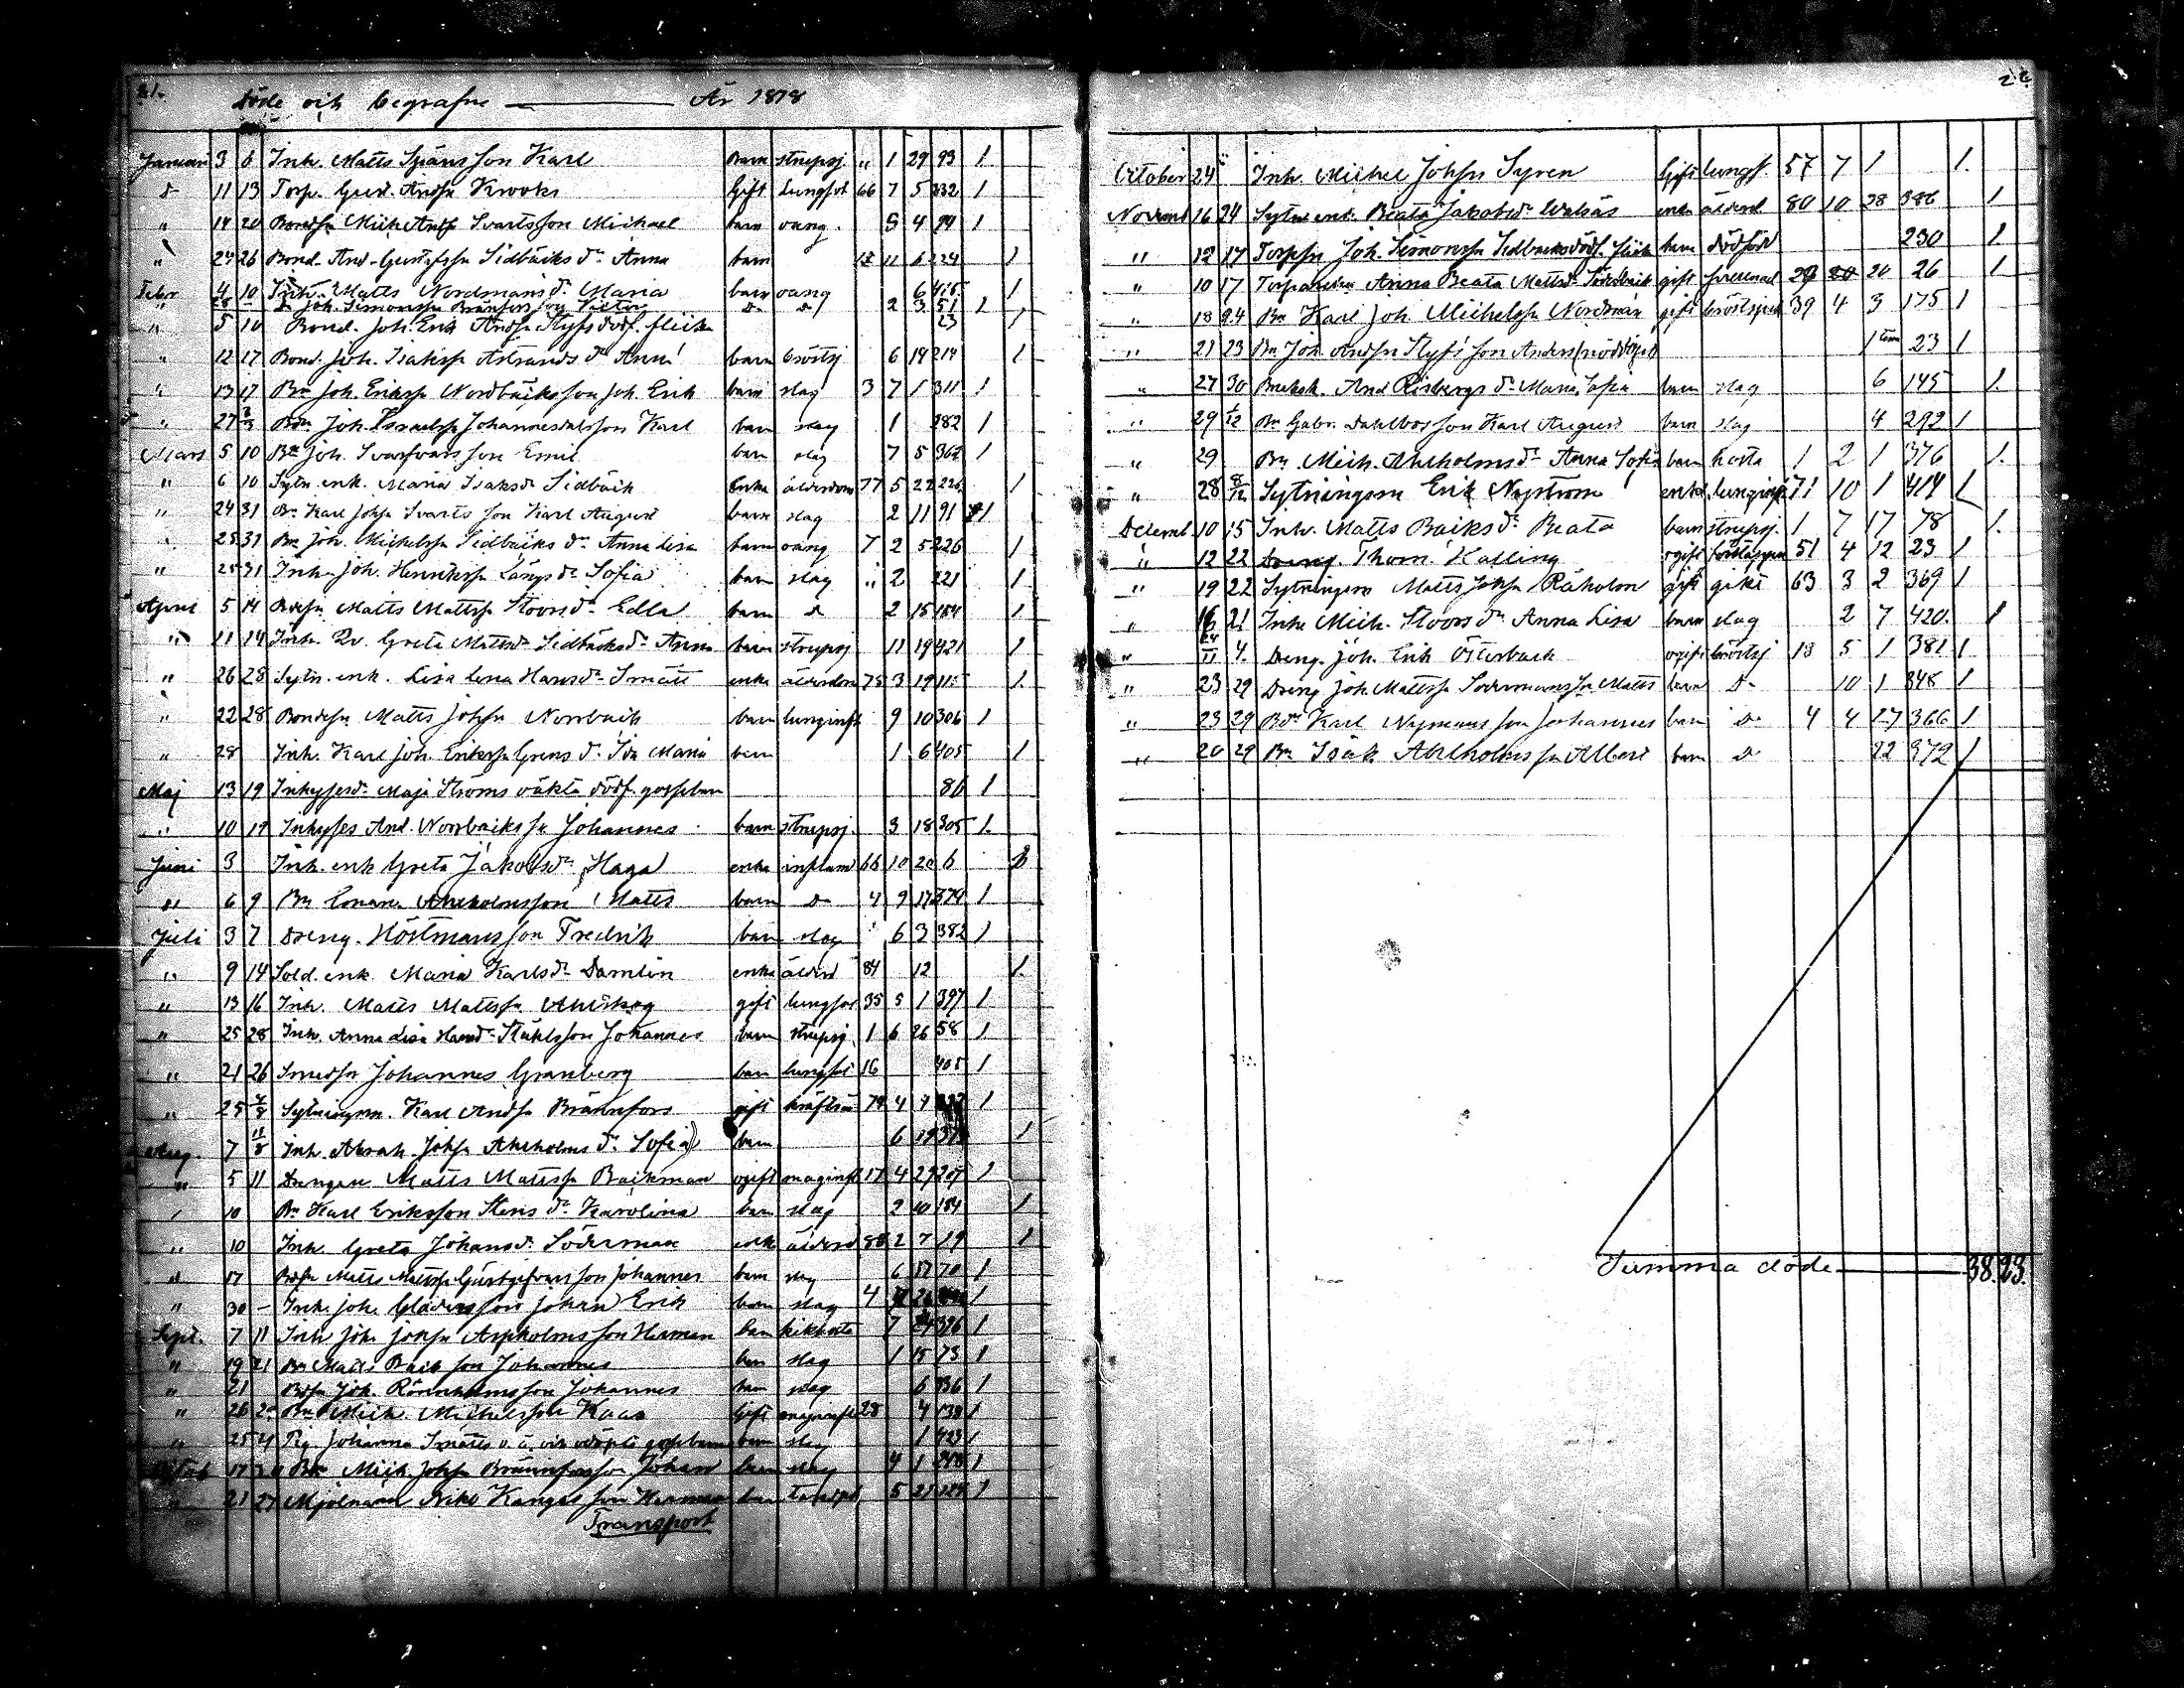 21.
Döde och begrafne — År 1878
Januari 3 6 Inh. Matts Spärsson Karl Barn strupsj. " 1 29 93 1
d 11 13 Torp. Gust. Andsn Krooks Gift lungsot 66 7 5 332 1
" 14 20 Svarts son Michael barn oang. 3 4 94 1
" 24 26 Bond. And. Gustafssn Sidbäcks dr Anna barn 11 6 224 1
Febr 4 10 Inh. Matts Nordmans dr Maria barn oang 6 415 1
Joh. Simonssn Bränfors son Victor d d 2 3 51 1
" 5 10 Bond. Joh. Erik Andsn Styfs dödf. flicka 23 1
" 12 17 Bond. Joh. Isakssn Åstrands dr Anna barn bröstsj 6 14 214 1
" 13 17 Bn Joh. Erikssn Nordbäcks son Joh. Erik barn slag 3 7 1 311 1
" 27 3/3 Bdn Joh. Israelssn Johannesdals son Karl barn slag 1 282 1
Mars 5 10 Bn Joh. Svarfvars son Emil barn slag 7 5 362 1
" 6 10 Sytn. enk. Maria Isaksdr Sidbäck Enka ålderdom 77 5 22 226 1
" 24 31 Bn Karl Johsn Svarts son Karl August barn slag 2 11 91 1
" 25 31 Bn Joh. Michelssn Sidbäcks dr Anna Lisa barn oang 7 2 5 226 1
" 25 31 Inh. Joh. Henrikssn Långs dr Sofia barn slag " 2 221 1
April 5 14 Bdsn Matts Mattssn Stoors dr Edla barn d 2 15 184 1
" 11 14 Inh. Qv. Greta Mattsdr Sidbäcks dr Anna barn strupsj 11 19 421 1
" 26 28 Sytn. enk. Lisa Lena Hansdr Smått enka ålderdom 75 3 19 115 1
" 22 28 Bondsn Matts Johsn Norrback barn lunginfl 9 10 306 1
" 28 Inh. Karl Joh. Erikssn Grens dr Ida Maria barn 1 6 405 1
Maj 13 19 Inhysesdr Maja Ströms oäkta dödf. gossebarn 86 1
" 10 19 Inhyses And. Norrbäcks sn Johannes barn strupsj. 3 18 305 1
Juni 3 Inh. enk Greta Jakobsdr Haga enka inflam 66 10 20 6 1
" 6 9 Bn Ahlholms son Matts barn d 4 9 17 374 1
Juli 3 7 Dreng. Höstmans son Fredrik barn slag " 6 3 382 1
" 9 14 Sold. enk. Maria Karlsdr Damlin enka ålderd 84 12 1
" 13 16 Inh. Matts Mattssn Ahlskog gift lungsot 35 5 1 397 1
" 25 28 Inh. Anna Lisa Hansdr Ståhls son Johannes barn strupsj 1 6 26 58 1
" 21 26 Smedsn Johannes Granberg barn lungsot 16 405 1
" 25 4/8 Sytningsm. Karl Andsn Brännfors gift kräftsår 74 4 1
Aug. 7 11/8 Inh. Abrah. Johsn Ahlholms dr Sofia barn 6 19 1
" 5 11 Drengen Matts Mattssn Backman ogift maginfl 17 4 29 207 1
10 Bn Karl Eriksson Stens dr Karolina barn slag 2 10 184 1
" 10 Inh. Greta Johansdr Söderman enk ålderd 80 2 7 19 1
" 17 Bdsn Matts Mattssn Gästgifvars son Johannes barn slag 6 17 70 1
" 30 – Inh. Joh. son Johan Erik barn slag 4 1
Sept. 7 11 Inh. Joh. Johsn Aspholms son Herman barn kikhosta 7 24 396 1
" 19 21 Bn Matts Back son Johannes barn slag 1 15 73 1
" 21 Bdsn Joh. Rönnholms son Johannes barn slag 6 336 1
" 26 Bn Mich. Michelsson Kaas Gift maginfl 28 4 139 1
" 25 Pig. Johanna Smätts o. ä. barn slag 1 423 1
Oktob 17 20 Bn Mich. Johsn Brännfors son Johan barn slag 4 1 248 1
" 21 27 Mjölnaren Kangas son Herman barn 5 21 1
Transport
22
October 24 Inh. Michel Johsn Syren Gift lungs. 57 7 1 1.
Novemb 16 24 Sytn. enk. Beata Jakobsdr Walsäs enka ålderd 80 10 28 386 1
" 12 17 Torpsn Joh. Simonssn Sidbäcks dödf. flicka barn dödföd 230 1
" 10 17 Anna Beata Mattsdr gift 29 20 26 1
" 18 24 Bn Karl Joh Michelssn Nordman gift bröstsjuk 39 4 3 175 1
" 21 23 Bn Joh. Andsn Styfs son Anders (nöddöpt) 1 tim 23 1
" 27 30 And Risbergs dr Maria Sofia barn slag 6 145 1.
" 29 1/12 Bn Gabr. Dahlbos son Karl August barn slag 4 292 1
" 29 Bn Mich. Ahlholms dr Anna Sofia barn hosta 1 2 1 376 1.
" 28 8/12 Sytningsm Erik Nyström enkl. lunginfl 71 10 1 414 1
Decemb 10 15 Inh. Matts Backs dr Beata barn strupsj. 1 7 17 78 1.
" 12 22 Dreng. Thom. Kalling ogift 51 4 12 23 1
" 19 22 Sytningsm Matts Johsn Råholm gift gikt 63 3 2 369 1
" 16 21 Inh. Mich. Stoors dr Anna Lisa barn slag 2 7 420. 1
" 24/11 4. Dreng. Joh. Erik Österback ogift bröstsj 18 5 1 381 1
" 23 29 Dreng Joh. Mattssn Södermans sn Matts barn D– 10 1 348 1
" 23 29 Bdn Karl Nymans son Johannes barn D– 4 4 17 366 1
" 20 29 Bn Isak Ahlholms sn Albert barn D– 22 372 1
Summa döde 38. 23.